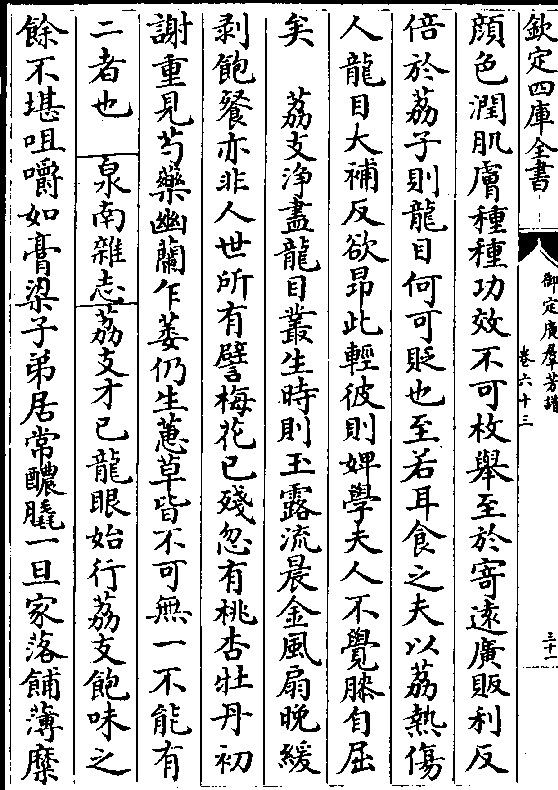 欽定四庫全書
御定廣羣芳譜
卷六十三
三十一
顔色潤肌膚種種功效不可枚舉至於寄遠廣販利反
倍於荔子則龍目何可貶也至若耳食之夫以荔熱傷
人龍目大補反欲昂此輕彼則婢學夫人不覺膝自屈
矣　荔支浄盡龍目叢生時則玉露流晨金風扇晚緩
剥飽餐亦非人世所有譬梅花已殘忽有桃杏牡丹初
謝重見芍藥幽蘭乍萎仍生蕙草皆不可無一不能有
二者也　泉南雜志荔支才已龍眼始行荔支飽味之
餘不堪咀嚼如膏粱子弟居常醲膬一旦家落餔薄糜